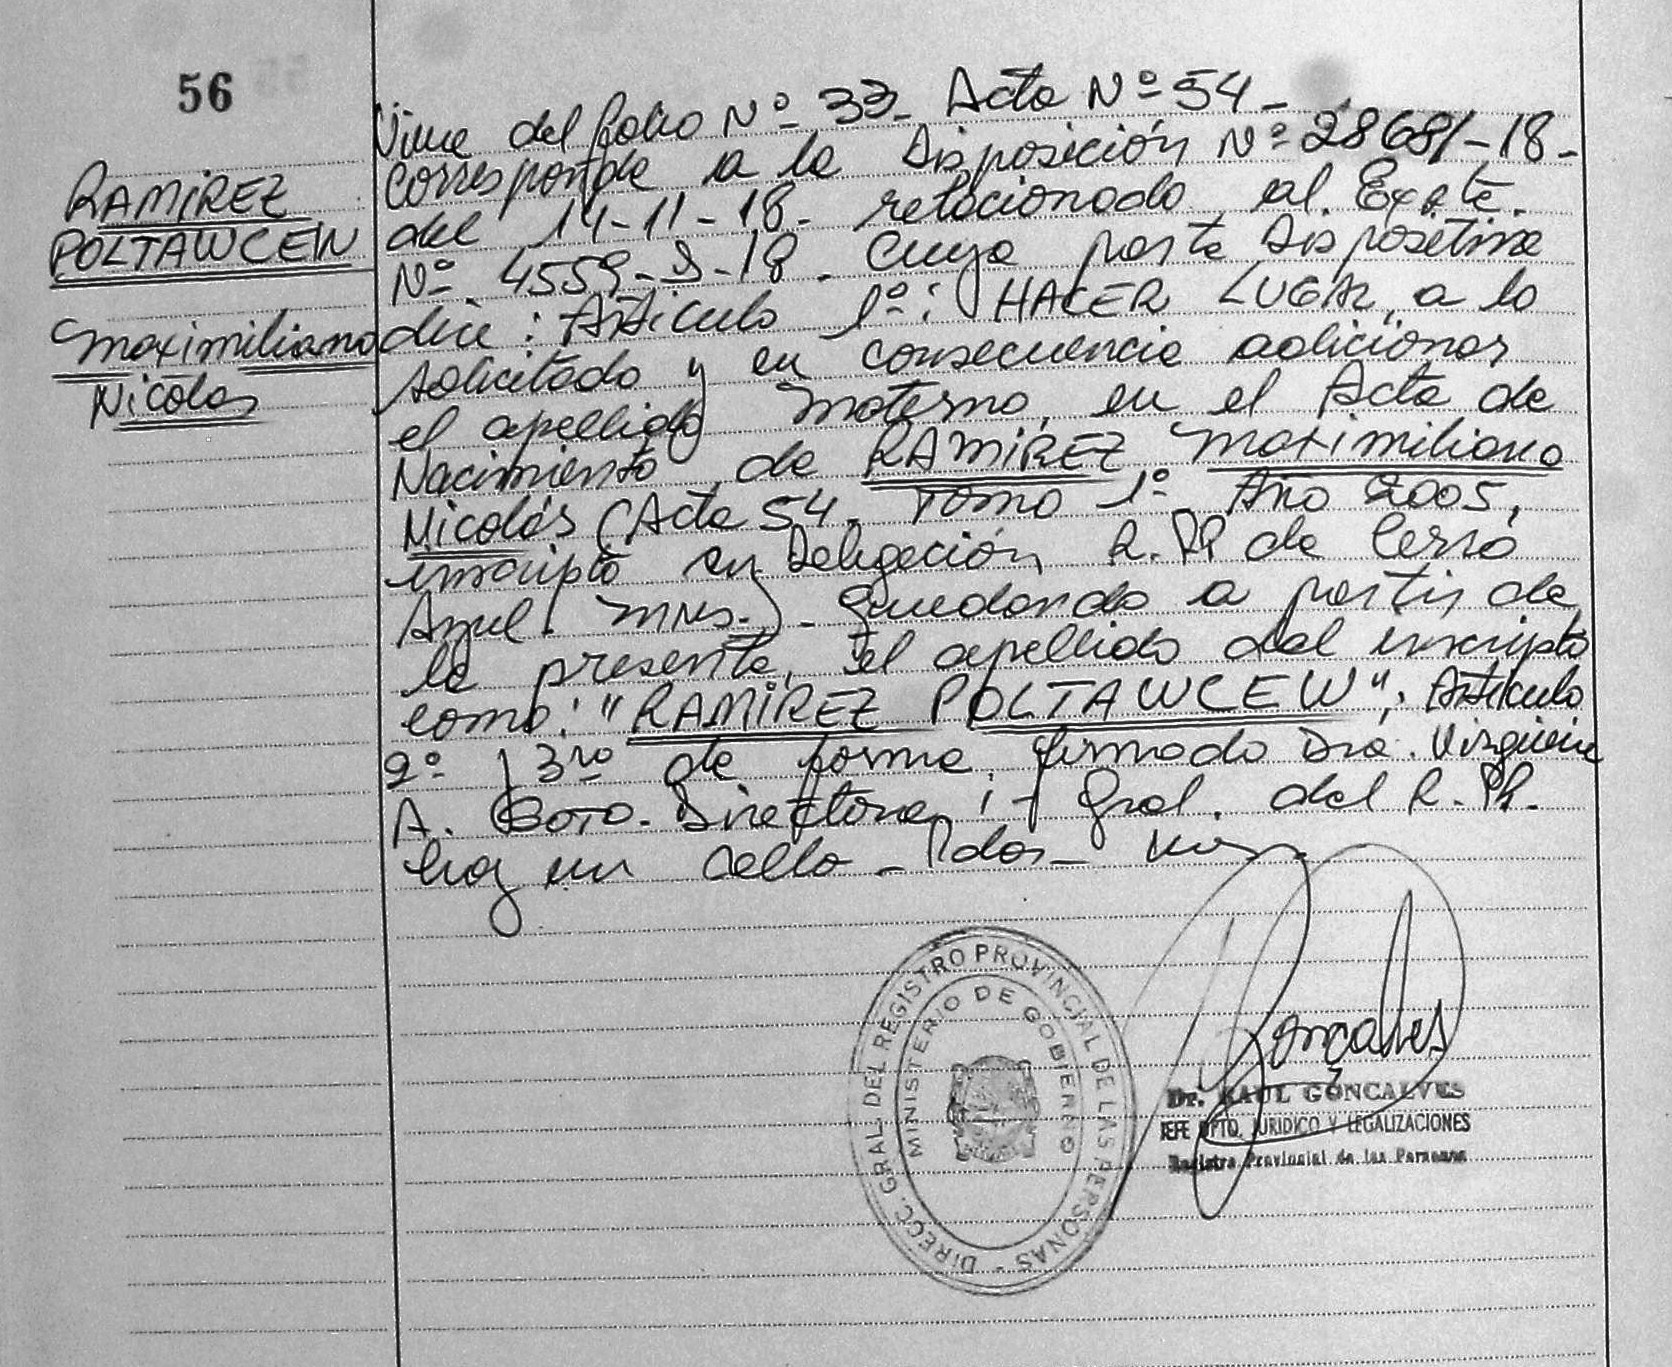 56
RAMIREZ
POLTAWCEW
Maximiliano
Nicolas
Viene del folio Nº 33- Acta Nº 54-
Corresponde a la Disposición Nº 2868/-18-
del 14-11-18- relacionado al Expte.
Nº 4559-S-18- Cuya parte Dispositiva
dice: Artículo 1º: HACER LUGAR a lo
solicitado y en consecuencia adicionar
el apellido materno, en el Acta de
Nacimiento de RAMIREZ Maximiliano
Nicolás (Acta 54- Tomo 1º Año 2005,
inscripto en Delegación R.PP de Cerro
Azul (MNS.)- Quedando a partir de
la presente, el apellido del inscripto
como: "RAMIREZ POLTAWCEW"; Artículo
2º y 3ro de forma, firmado Dra. Virginia
A. Boto- Directora Gral. del R.PP.
hay un sello- Pdas-
Gonçalves
DIRECC. GRAL. DEL REGISTRO PROVINCIAL DE LAS PERSONAS -
MINISTERIO DE GOBIERNO
Dr. RAUL GONCALVES
JEFE DPTO. JURIDICO Y LEGALIZACIONES
Registro Provincial de las Personas